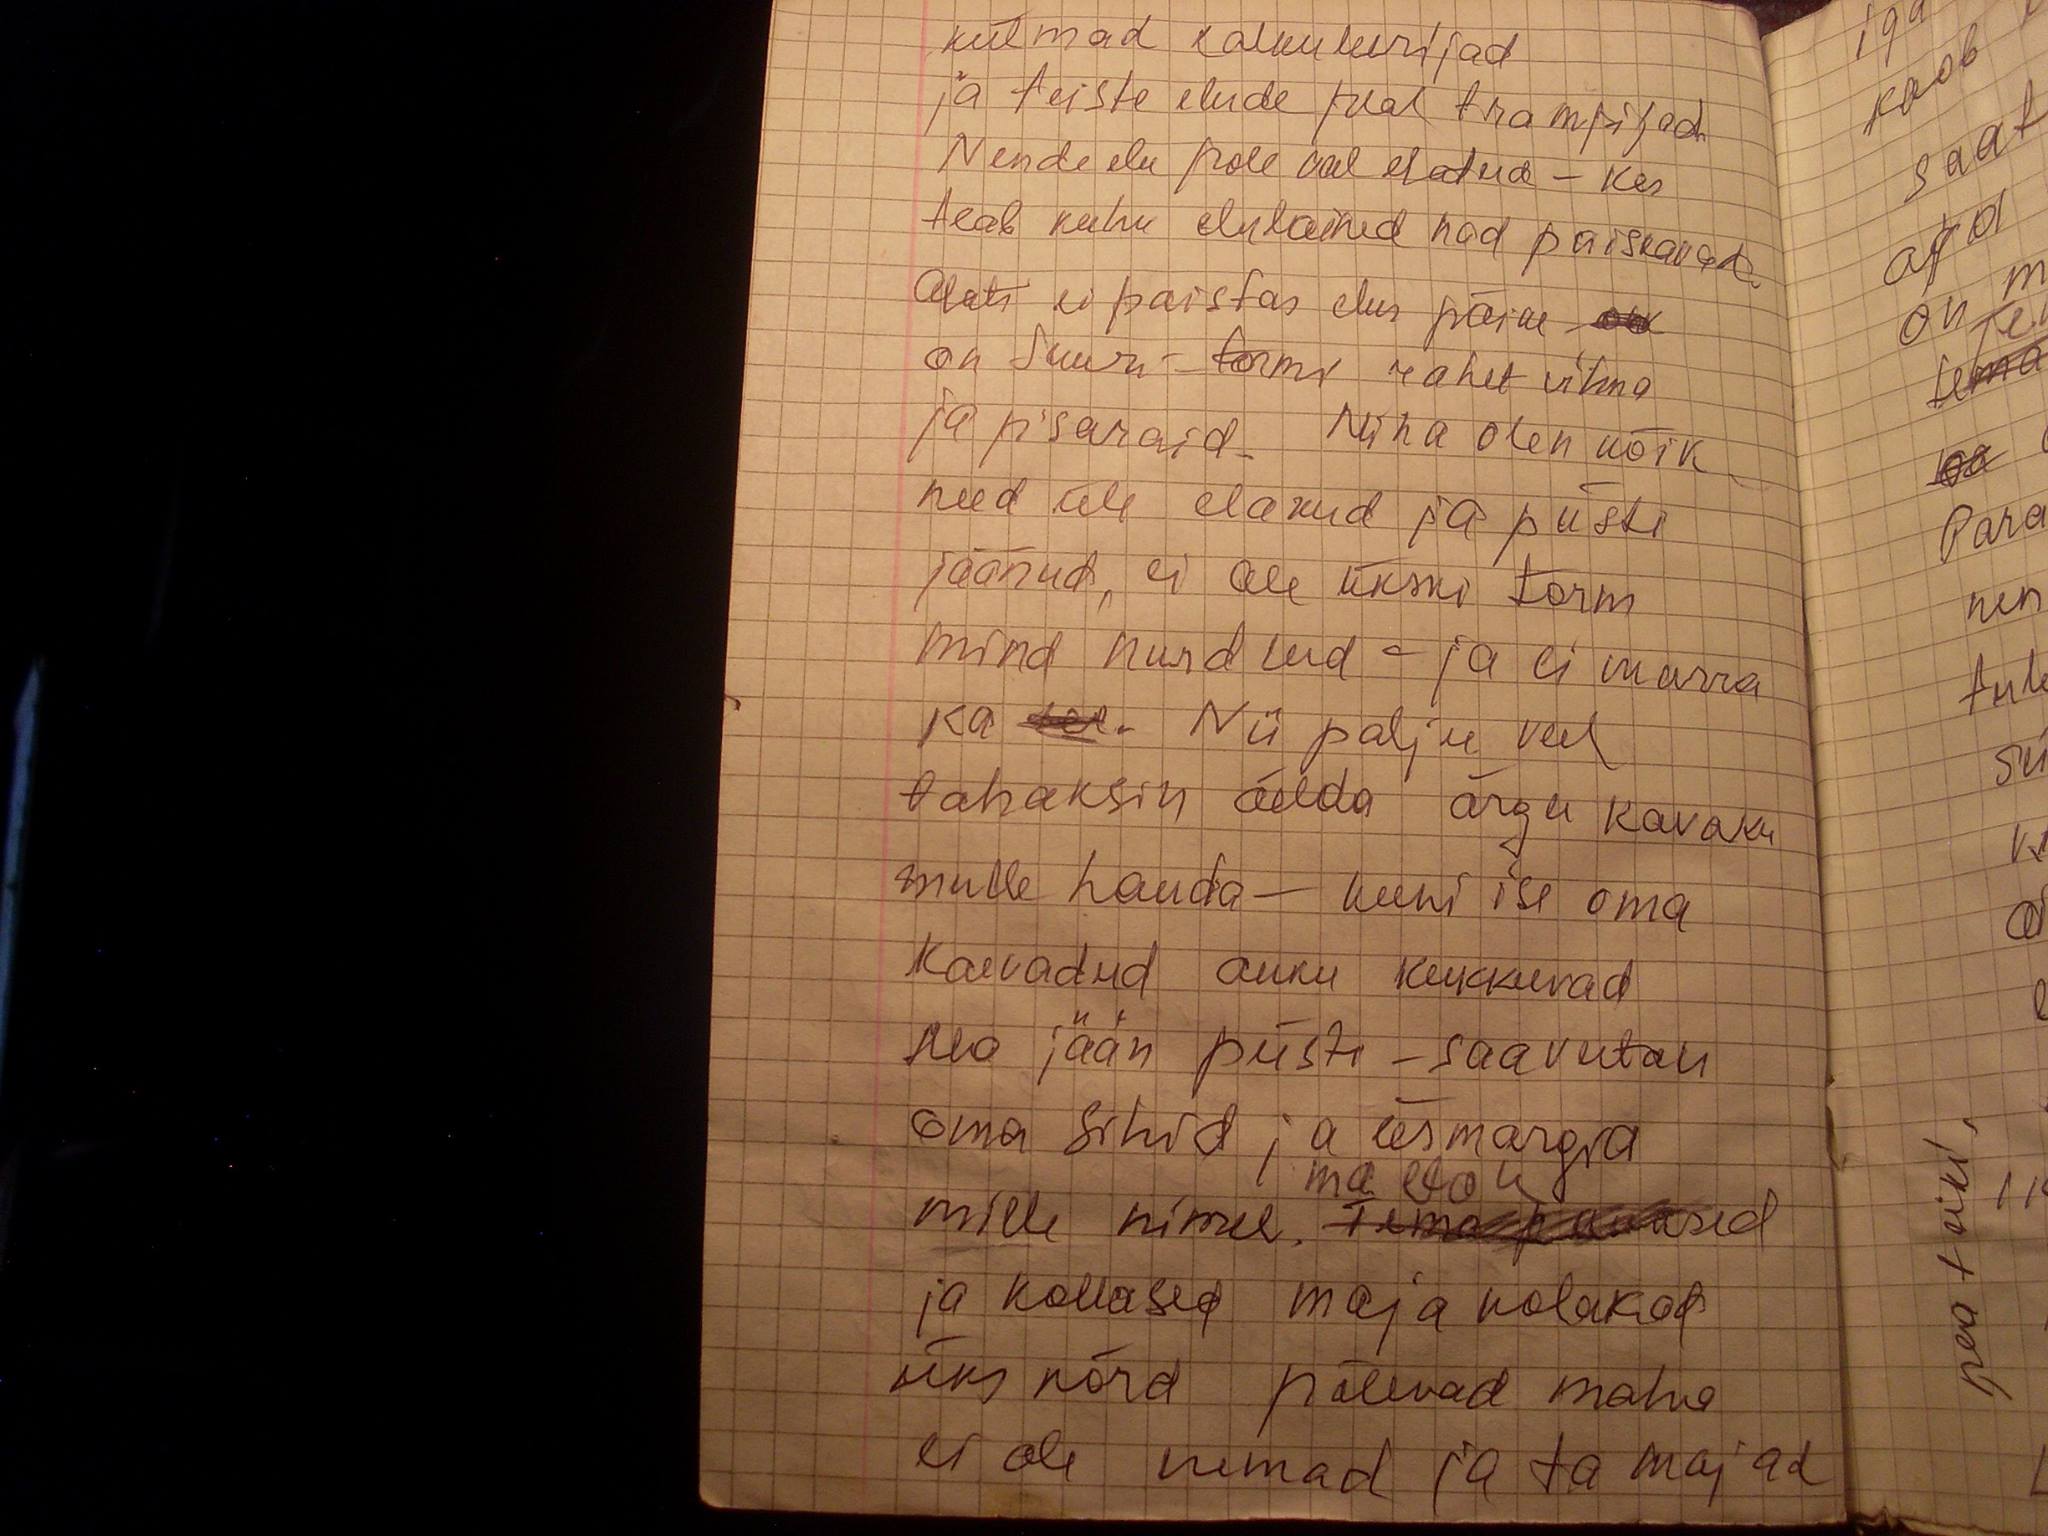 külmad kalkuleerijad
ja teiste elude peal trampijad.
Nende elu pole veel elatud – kes
teab kuhu elulained nad paiskavad.
Alati ei paista elus päike
on suuri tormi rahet vihma
ja pisaraid. Mina olen kõik
need üle elanud ja püsti
jäänud, ei ole ükski torm
mind murdnud – ja ei murra
ka Nii palju veel
tahaksin öelda ärgu kavaku
mulle hauda – kuni ise oma
kaevadud auku kukkuvad
Ma jään püsti – saavutan
oma sihid ja eesmärgid
ma elan
mille nimel.
ja kollased maja kolakad
üks kord põlevad maha
ei ole nemad ja ta majad
iga
kaob
saat
on
tema
Para
nen
tule
pea tiki,